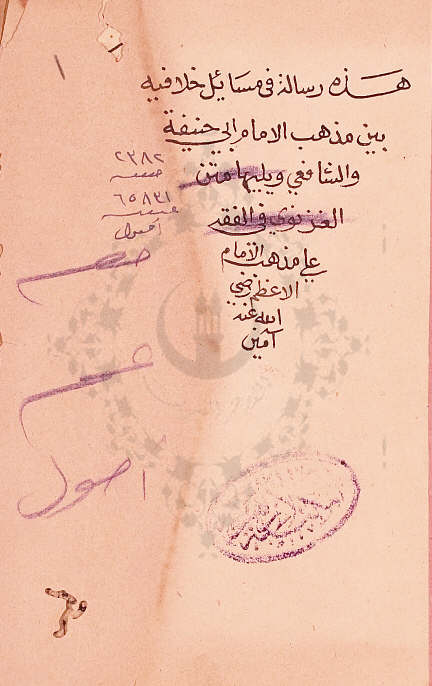 ١
هذه رسالة في مسائل خلافيه
بين مذهب الامام ابي حنيفة
والشافعي ويليها متن
الغزنوي في الفقه
علي مذهب الامام
الاعظم رضي
الله عنه
آمين
٢٣٨٢
٦٥٨٣١
اصول